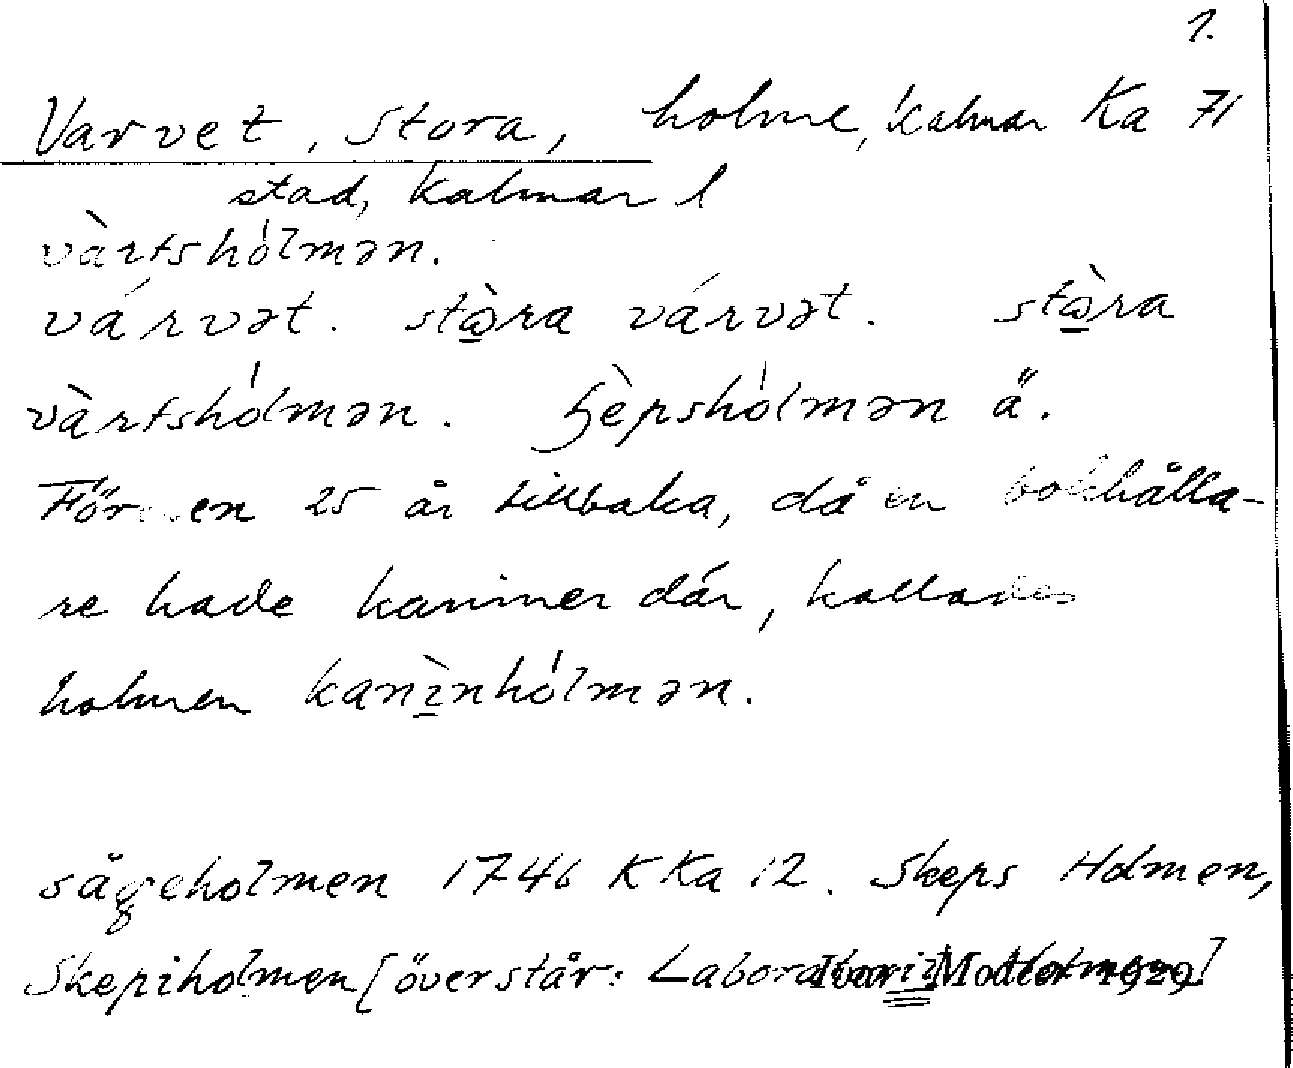 1.
Varvet, Stora, holme, Kalmar Ka 71
stad, Kalmar l
vàrfshólmən.
várvət. stὼ̲ra várvət. stὼ̲ra
vàrfshólmən. ʃèpshólmən ä.
För en 25 år tillbaka, då en bokhålla-
re hade kaniner där, kallades
holmen kanì̲nhólmən.
sågeholmen 1746 KKa 12. Skeps Holmen,
Skepiholmen [överstår: Holmen]
Ivar Modéer 1929